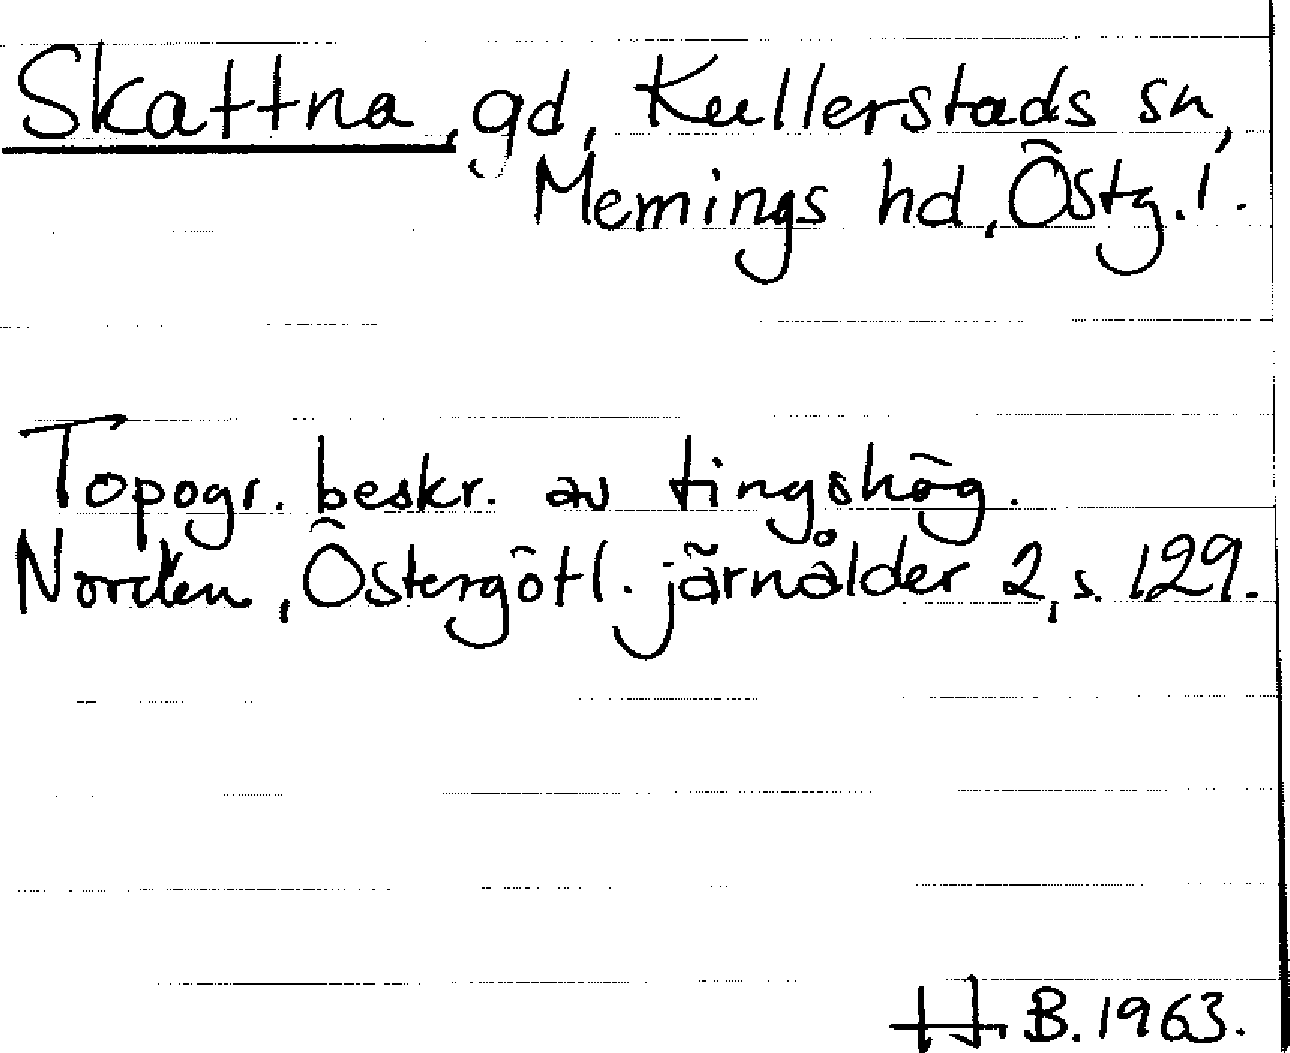 Skattna, gd, Kullerstads sn,
Memings hd, Östg. l.
Topogr. beskr. av tingshög.
Nordén, Östergötl. järnålder 2, s. 129.
H. B. 1963.